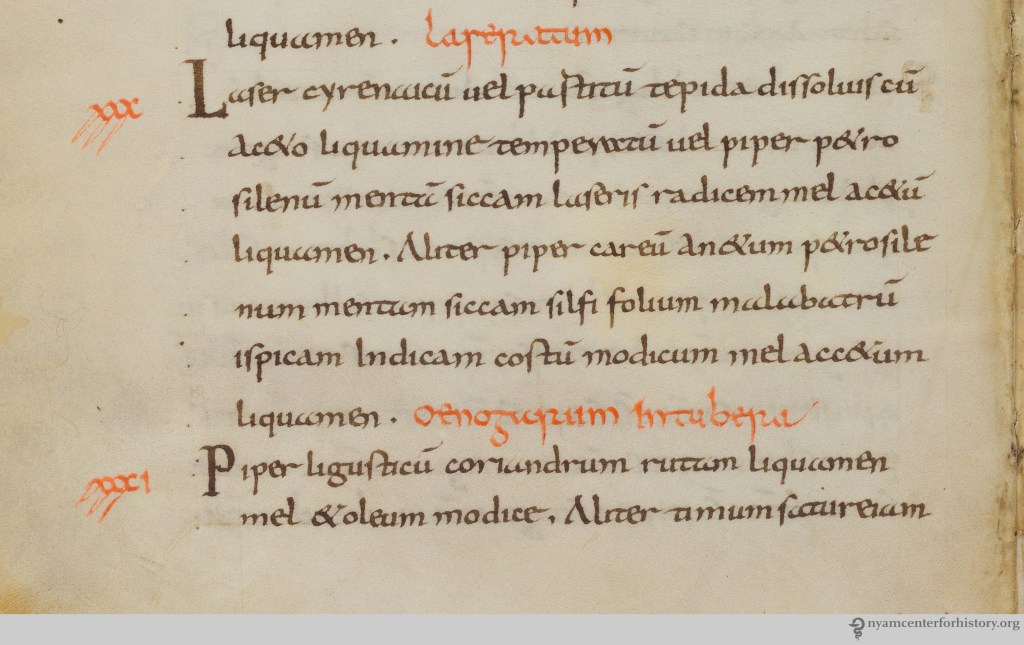 liquamen. laseratum
xxx Laser cyrenaicū uel pastitū tepida dissoluis cū
ac&o liquamine temperatū uel piper p&ro
silenū mentā siccam laseris radicem mel ac&ū
liquamen. Aliter piper careū an&um p&rosile
num mentam siccam silfi folium malabatrū
ispicam Indicam costū modicum mel acc&um
liquamen. Oenogarum In tubera
xxxi Piper ligusticū coriandrum rutam liquamen
mel &oleum modice. Aliter timum satureiam
nyamcenterforhistory.org